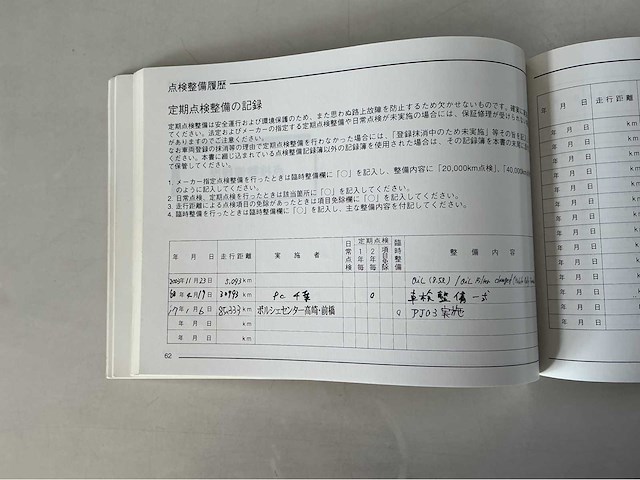 点検整備履歴
定期点検整備の記録
定期点検整備は安全運行および環境保護のため、また思わぬ路上故障を防止するため欠かせないものです。確実に
てください。法定およびメーカーの指定する定期点検整備や日常点検が未実施の場合には、保証修理が受けられな
がありますのでご注意ください。
なお車両登録の抹消等の理由で定期点検整備を行わなかった場合には、「登録抹消中のため未実施」等その旨を記
ください。本書に綴じ込まれている点検整備記録簿以外の記録簿を使用された場合は、その記録簿を本書の末尾に
て保管してください。
1. メーカー指定点検整備を行ったときは臨時整備欄に「○」を記入し、整備内容に「20,000km点検」、「40,000
のように記入してください。
2. 日常点検、定期点検を行ったときは該当箇所に「○」を記入してください。
3. 走行距離による点検項目の免除があったときは項目免除欄に「○」を記入してください。
4. 臨時整備を行ったときは臨時整備欄に「○」を記入し、主な整備内容を付記してください。
年 月 日 走行距離 実施者 日常点検 定期点検 1年毎 2年毎 項目免除 臨時整備 整備内容
2003年11月23日 5,093km OiL (8.5L) / OiL Filter
年4月17日 km PC 千葉 ○ 車検整備一式
17年1月6日 85,333km ポルシェセンター高崎・前橋 ○ PJ03実施
年 月 日 km
年 月 日 km
62
年 月 日 走行距離
年 月 日
年 月 日
年 月 日
年 月 日
年 月 日
年 月 日
年 月 日
年 月 日
年 月 日
年 月 日
年 月 日
年 月 日